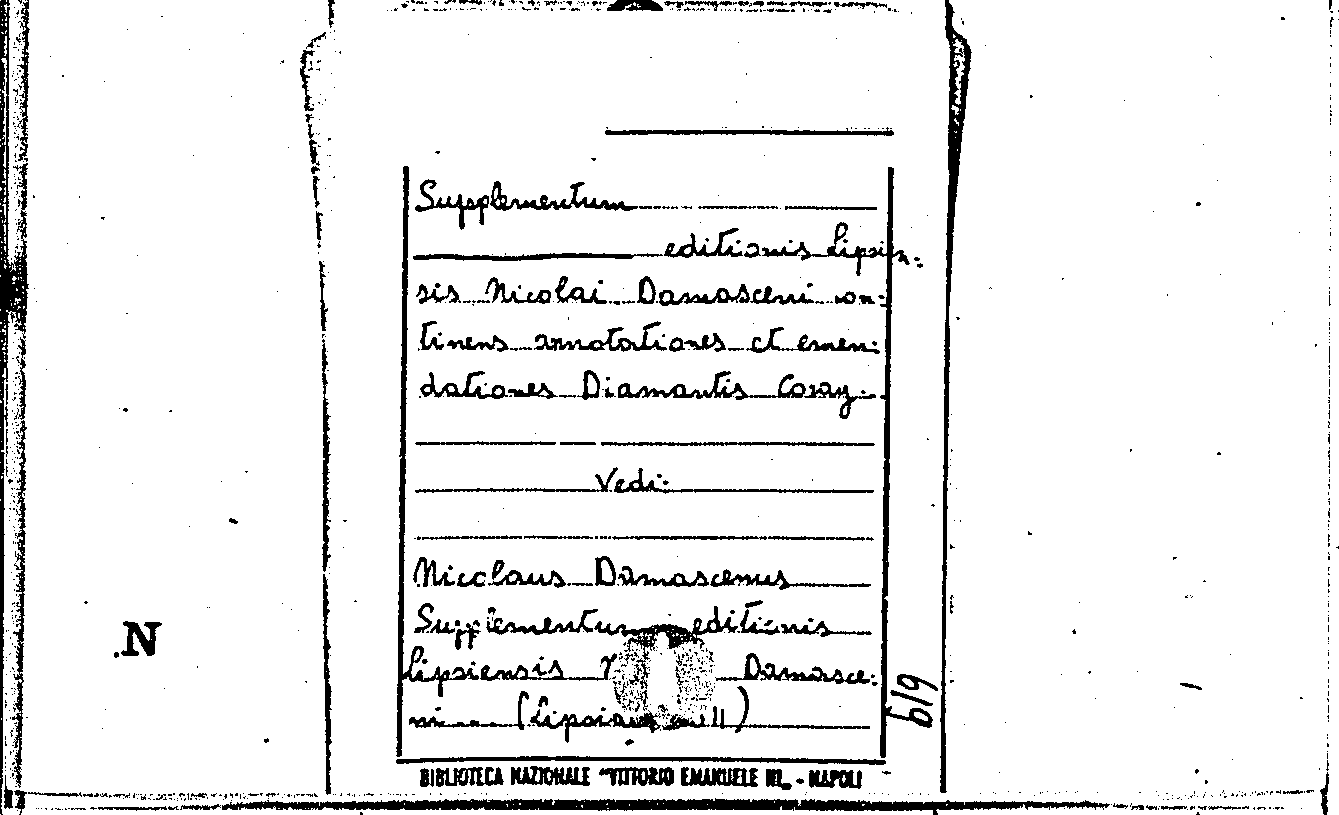 Supplementum
editionis Lipsien:
sis Nicolai Damasceni con:
tinens annotationes et emen:
dationes Diamantis Coray.
Vedi:
Nicolaus Damascenus
Supplementum editionis
Lipsiensis Damasce:
ni.... (Lipsiae
N
6/9
BIBLIOTECA NAZIONALE "VITTORIO EMANUELE III„ - NAPOLI